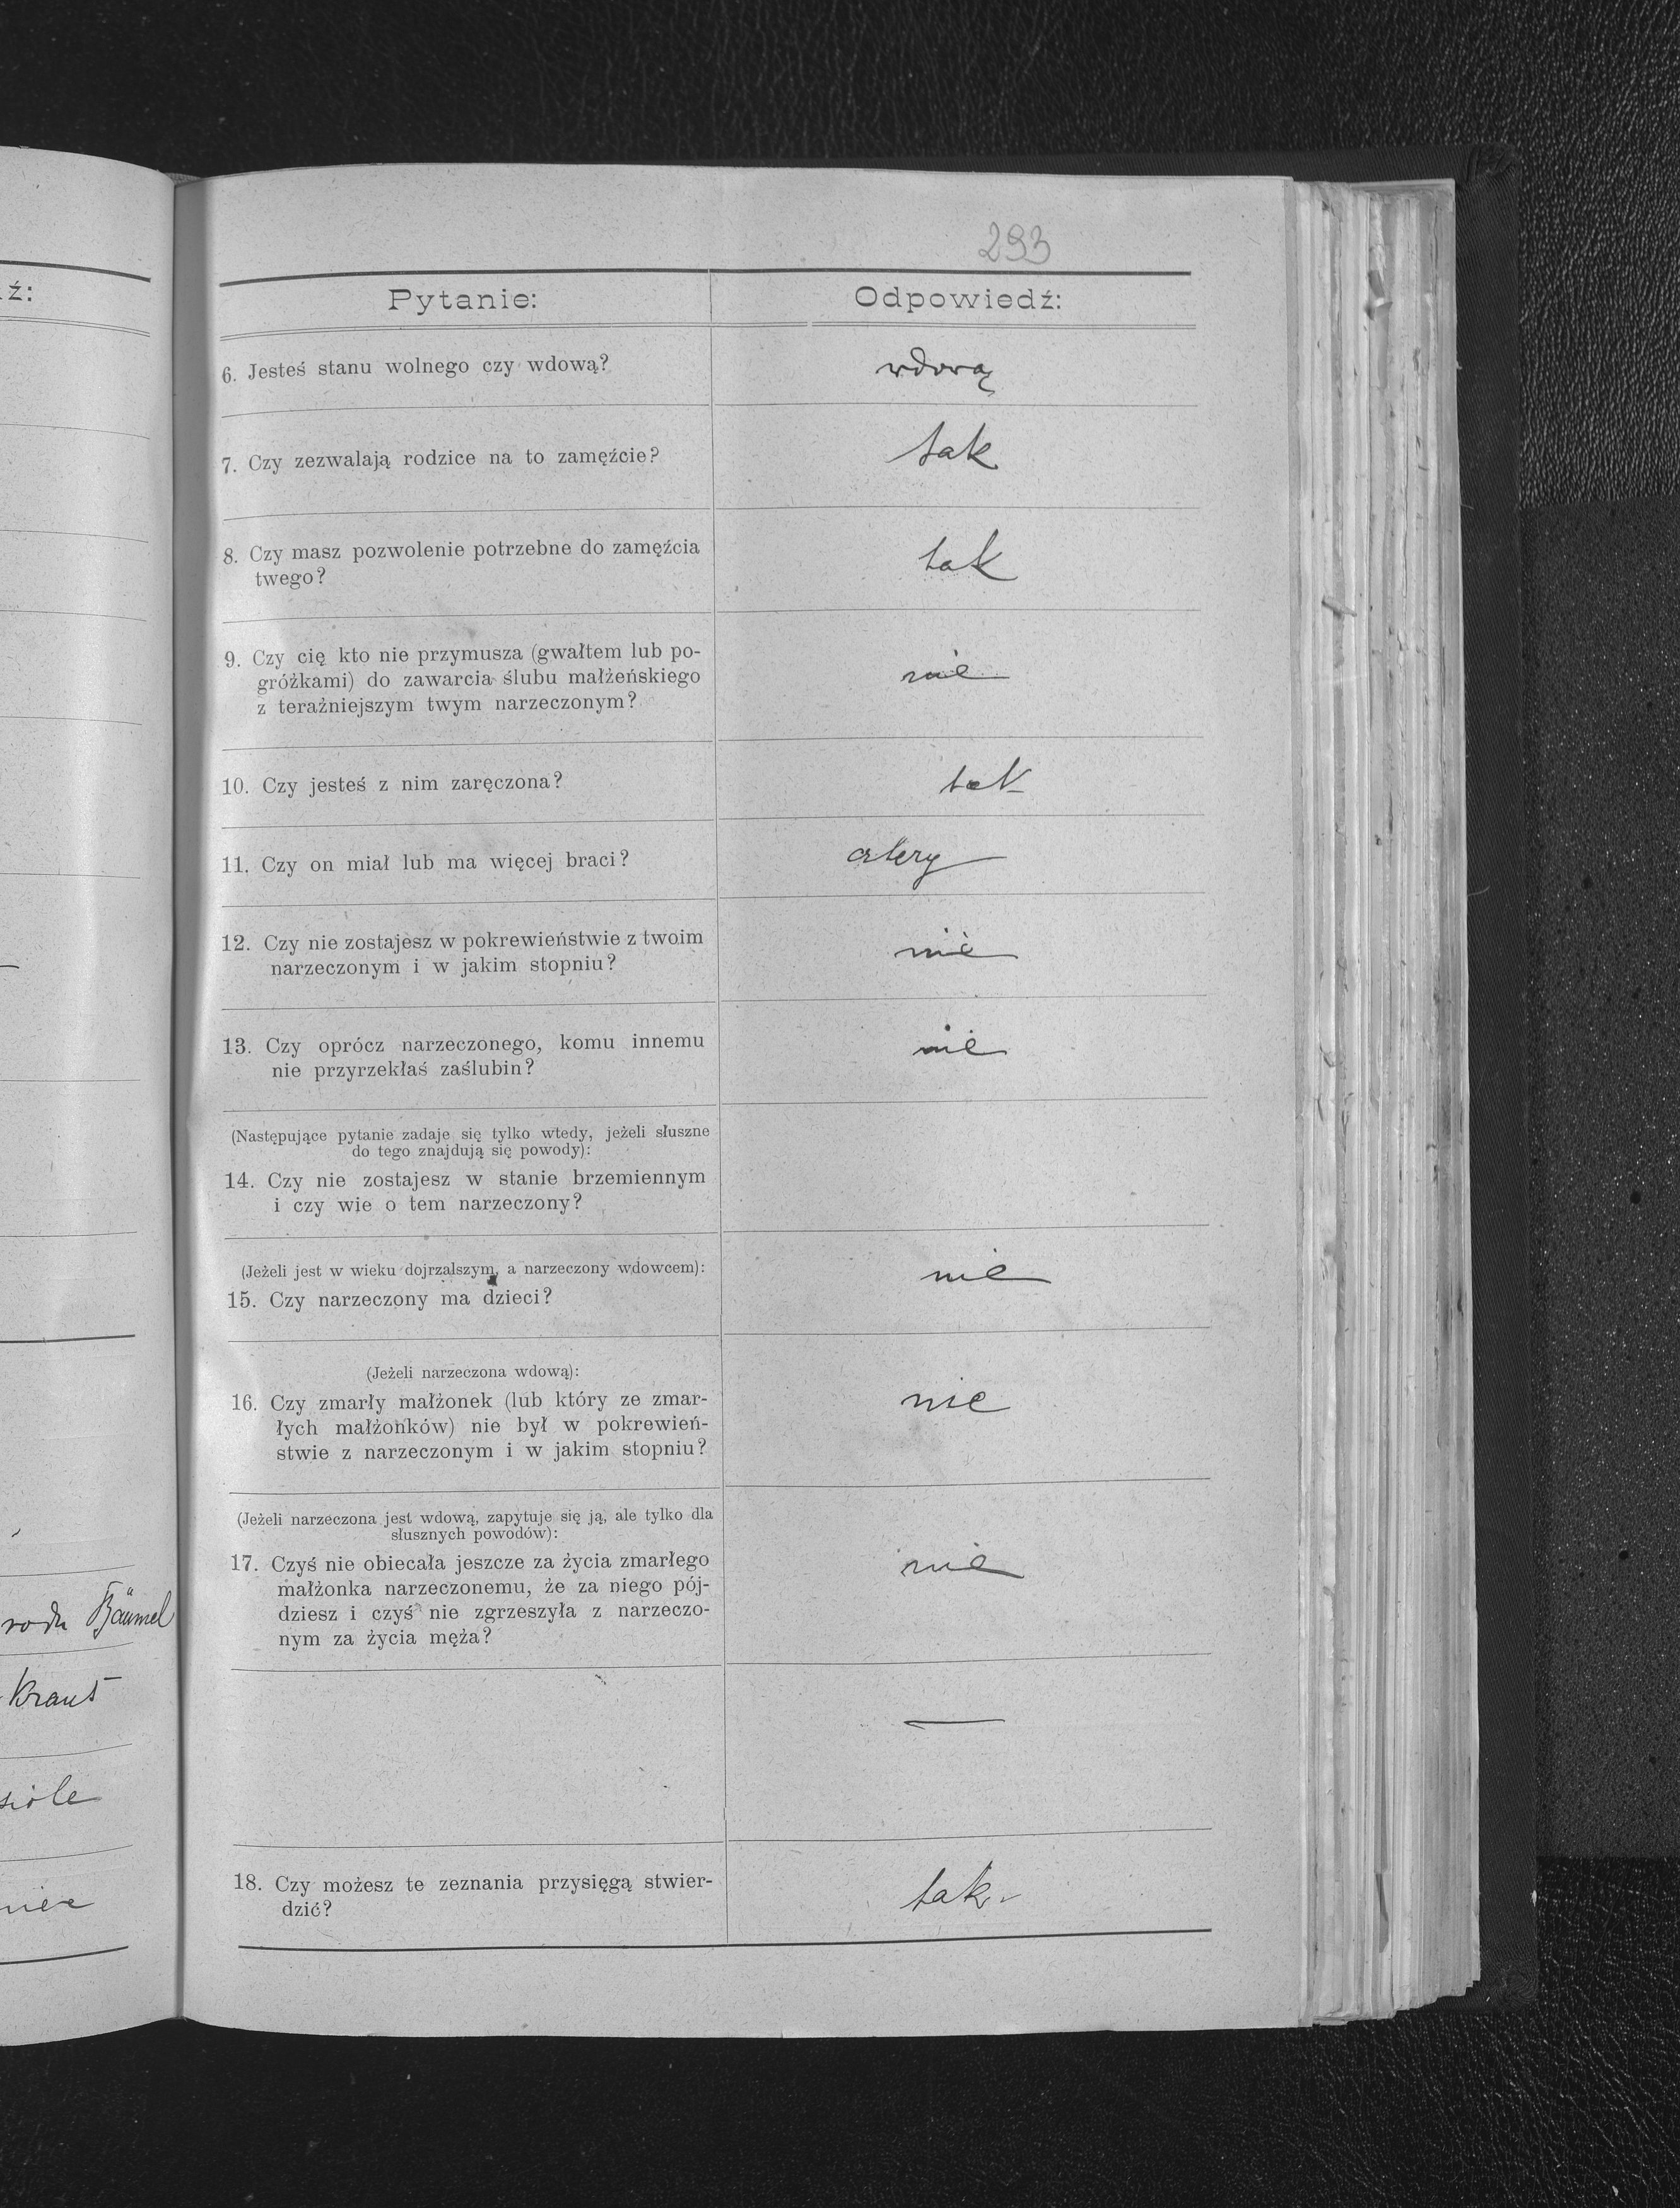 ź:
rodu Bäumel
Kraus
siole
293
Pytanie:
Odpowiedź:
6. Jesteś stanu wolnego czy wdową?
wdową
7. Czy zezwalają rodzice na to zamęźcie?
tak
8. Czy masz pozwolenie potrzebne do zamęźcia
twego?
tak
9. Czy cię kto nie przymusza (gwałtem lub po-
gróżkami) do zawarcia ślubu małżeńskiego
z teraźniejszym twym narzeczonym?
nie
10. Czy jesteś z nim zaręczona?
tak
11. Czy on miał lub ma więcej braci?
cztery
12. Czy nie zostajesz w pokrewieństwie z twoim
narzeczonym i w jakim stopniu?
nie
13. Czy oprócz narzeczonego, komu innemu
nie przyrzekłaś zaślubin?
nie
(Następujące pytanie zadaje się tylko wtedy, jeżeli słuszne
do tego znajdują się powody):
14. Czy nie zostajesz w stanie brzemiennym
i czy wie o tem narzeczony?
(Jeżeli jest w wieku dojrzalszym, a narzeczony wdowcem):
15. Czy narzeczony ma dzieci?
nie
(Jeżeli narzeczona wdową):
16. Czy zmarły małżonek (lub który ze zmar-
łych małżonków) nie był w pokrewień-
stwie z narzeczonym i w jakim stopniu?
nie
(Jeżeli narzeczona jest wdową, zapytuje się ją, ale tylko dla
słusznych powodów):
17. Czyś nie obiecała jeszcze za życia zmarłego
małżonka narzeczonemu, że za niego pój-
dziesz i czyś nie zgrzeszyła z narzeczo-
nym za życia męża?
nie
—
18. Czy możesz te zeznania przysięgą stwier-
dzić?
tak